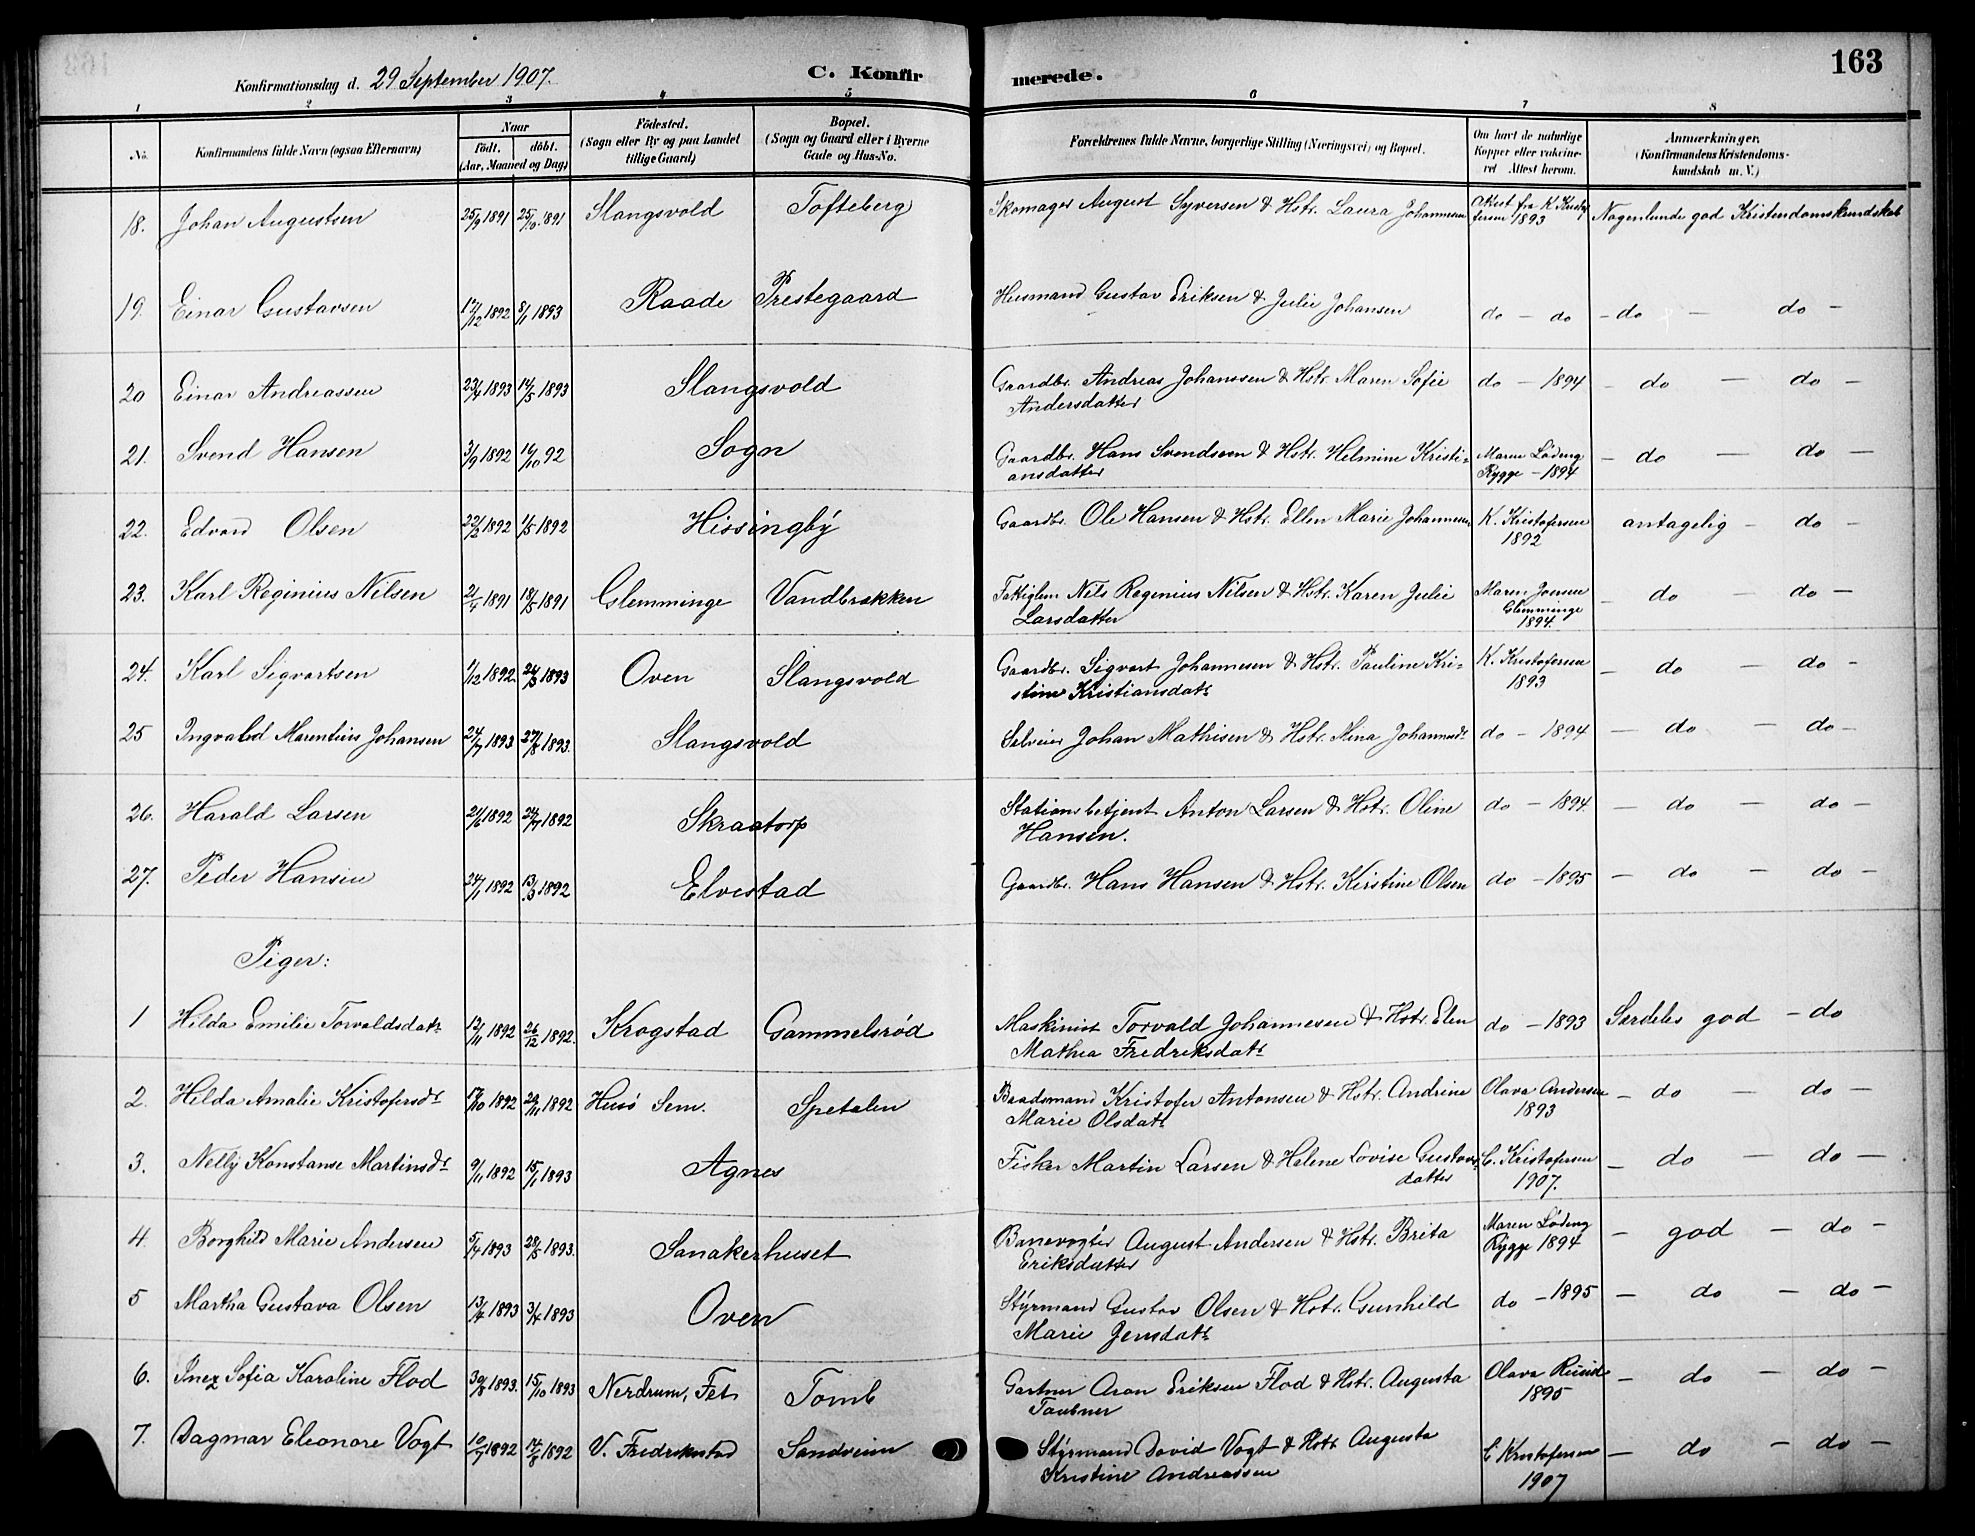 163
Konfirmationsdag d. 29 September 1907.
C. Konfirmerede.
1 2 3 4 5 6 7 8
No.
Konfirmandens fulde Navn (ogsaa Efternavn)
Naar
födt. döbt.
(Aar, Maaned og Dag)
Födested.
(Sogn eller By og paa Landet
tillige Gaard)
Bopæl.
(Sogn og Gaard eller i Byerne
Gade og Hus-No.
Forældrenes fulde Navne, borgerlige Stilling (Næringsvei) og Bopæl.
Om havt de naturlige
Kopper eller vakcine-
ret Attest herom.
Anmærkninger,
(Konfirmandens Kristendoms-
kundskab m. V.)
18. Johan Augustsen 25/9 1891 25/10 1891 Slangsvold Tofteberg Skomager August Syversen & Hstr. Laura Johannesen Attest fra K Kristofersen 1893 Nogenlunde god Kristendomskundskab
19. Einar Gustavsen 17/12 1892 8/1 1893 Raade Prestegaard Husmand Gustav Eriksen & Julie Johansen do – do – do – do –
20 Einar Andreassen 23/4 1893 14/5 1893 Slangsvold Gaardbr. Andreas Johanssen & Hstr. Maren Sofie
Andersdatter do – 1894 – do – do –
21. Svend Hansen 3/9 1892 16/10 92 Sogn Gaardbr. Hans Svendsen & Hstr. Helmine Kristi-
ansdatter Maren Löding
Rygge – 1894 – do – do –
22. Edvard Olsen 22/2 1892 1/5 1892 Hissingby Gaardbr. Ole Hansen & Hstr. Ellen Marie Johannesen K. Kristofersen
1892 antagelig – do –
23. Karl Reginius Nilsen 2/4 1891 18/5 1891 Glemminge Vandbrækken Nils Regenius Nilsen & Hstr. Karen Julie
Larsdatter Maren Jonsen
Glemminge
1894. – do – do –
24. Karl Sigvartsen 1/12 1892 26/3 1893 Oven Slangsvold Gaardbr. Sigvart Johannesen & Hstr. Pauline Kri-
stine Kristiansdatr K. Kristofersen
1893 – do – do –
25 Ingvald Marentius Johansen 24/7 1893 27/8 1893. Slangsvold Selveier Johan Mathisen & Hstr. Mina Johannesdr do – 1894 – do – do –
26. Harald Larsen 21/6 1892 24/7 1892 Skraatorp Stationsbetjent Anton Larsen & Hstr. Oline
Hansen. do – 1894. – do – do –
27. Peder Hansen 24/1 1892 13/3 1892 Elvestad Gaardbr. Hans Hansen & Hstr. Kirstine Olsen do – 1895 – do – do –
Piger:
1 Hilda Emilie Torvaldsdatr 12/11 1892 26/12 1892. Krogstad Gammelsrød Maskinist Torvald Johannesen & Hstr. Elen
Mathea Fredriksdatr do – 1893 Særdeles god – do
2. Hilda Amalie Kristofersdr 17/10 1892 24/11 1892 Husö Sem. Spetalen Baadsmand Kristofer Antonsen & Hstr. Andrine
Marie Olsdatr Olava Andersen
1893 – do – do –
3. Nelly Konstanse Martinsdr 9/11 1892 15/1 1893 Agnes Fisker Martin Larsen & Helene Lovise Gustavs
datter C. Kristofersen
1907. – do – do –
4. Borghild Marie Andersen 5/4 1893 28/5 1893. Sanakerhuset Banevogter August Andersen & Hstr. Brita
Eriksdatter Maren Löding
Rygge 1894 – god – do –
5 Martha Gustava Olsen 1893 3/4 1893 Oven Styrmand Gustav Olsen & Hstr. Gunhild
Marie Jensdatr do – 1895 – do – do –
6. Inez Sofia Karoline Flod 30/8 1893. 15/10 1893 Nerdrum, Fet Tomb Gartner Aron Eriksen Flod & Hstr. Augusta
Taubner Olava Ruud
1895 – do – do –
7. Dagmar Eleonore Vogt 10/7 1892 14/8 1892 V. Fredrikstad Sandveien Styrmand David Vogt & Hstr Augusta
Kristine Andreassen C Kristofersen
1907 – do – do –